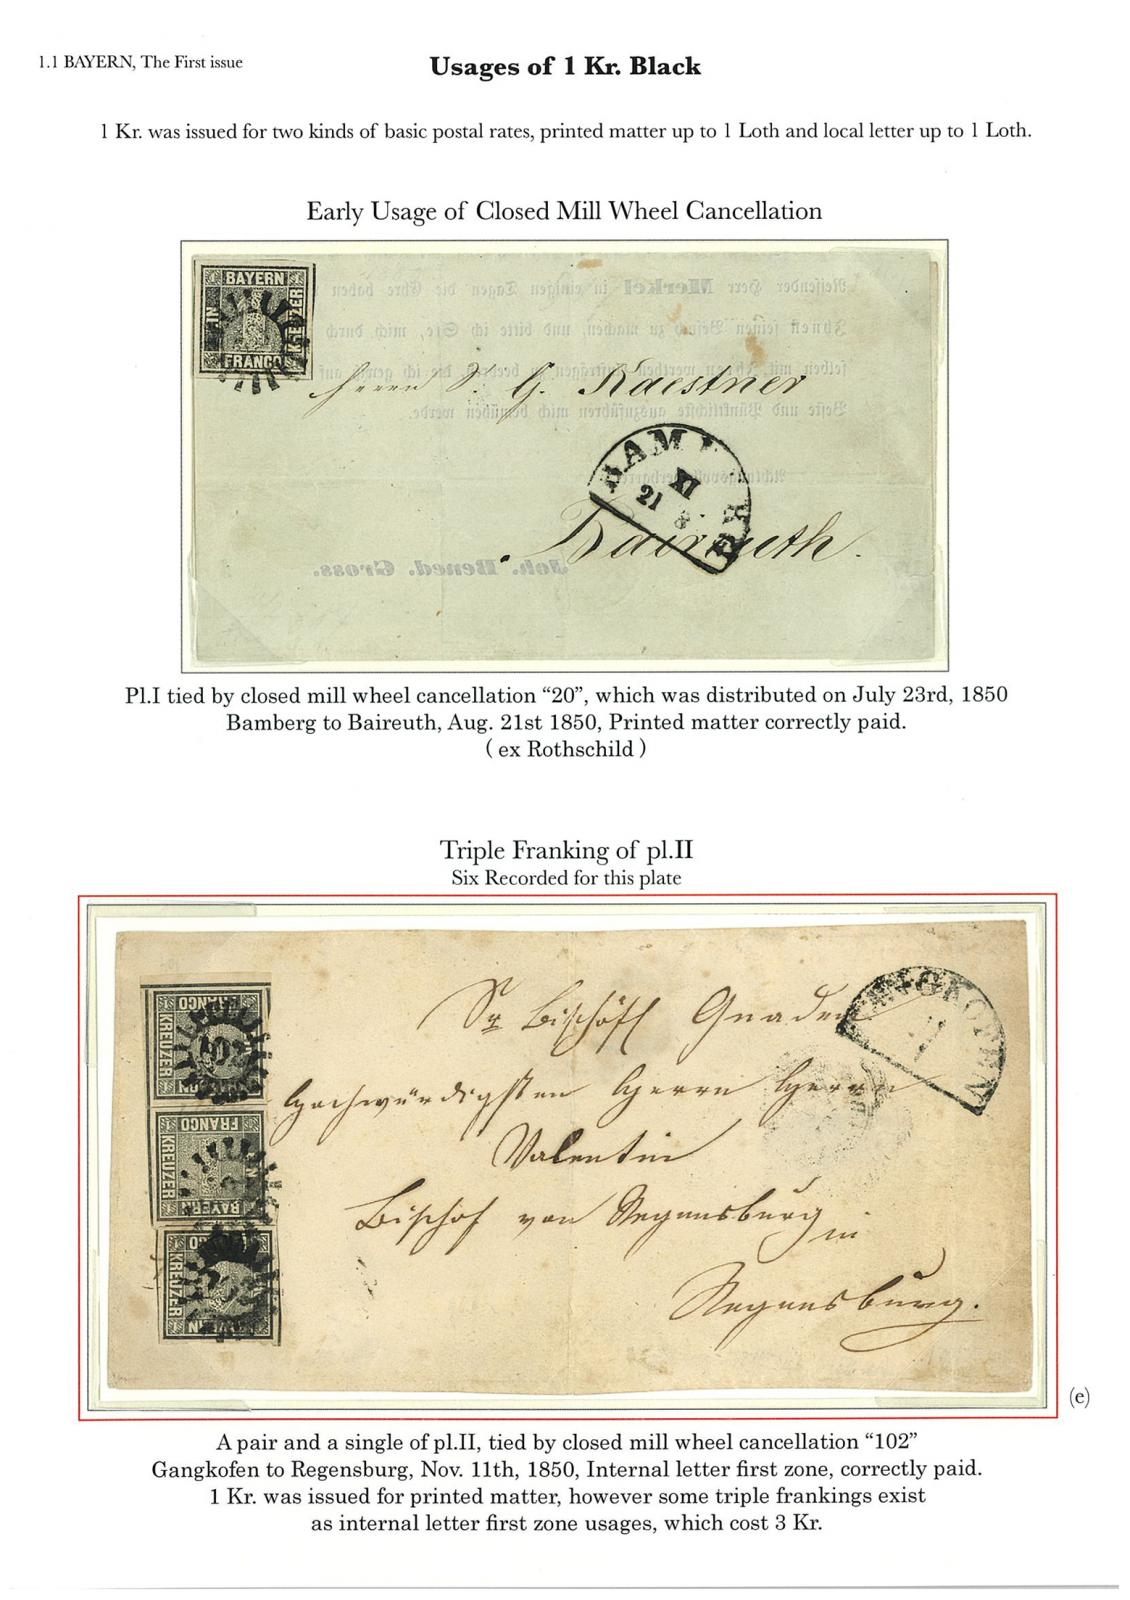 1.1 BAYERN, The First issue
Usages of 1 Kr. Black
1 Kr. was issued for two kinds of basic postal rates, printed matter up to 1 Loth and local letter up to 1 Loth.
Early Usage of Closed Mill Wheel Cancellation
BAYERN
FRANCO
Reisender Herr Merkel in einigen Tagen die Ehre haben
Herrn G. Kaestner
XI
21 8
Baireuth.
Joh. Bened. Gross.
Pl.I tied by closed mill wheel cancellation “20”, which was distributed on July 23rd, 1850
Bamberg to Baireuth, Aug. 21st 1850, Printed matter correctly paid.
( ex Rothschild )
Triple Franking of pl.II
Six Recorded for this plate
FRANCO
KREUZER
FRANCO
KREUZER
BAYERN
KREUZER
Sr Bischöfl Gnaden
Hochwürdigsten Herrn Herrn
Valentin
Bischof von Regensburg
in
Regensburg.
(e)
A pair and a single of pl.II, tied by closed mill wheel cancellation “102”
Gangkofen to Regensburg, Nov. 11th, 1850, Internal letter first zone, correctly paid.
1 Kr. was issued for printed matter, however some triple frankings exist
as internal letter first zone usages, which cost 3 Kr.